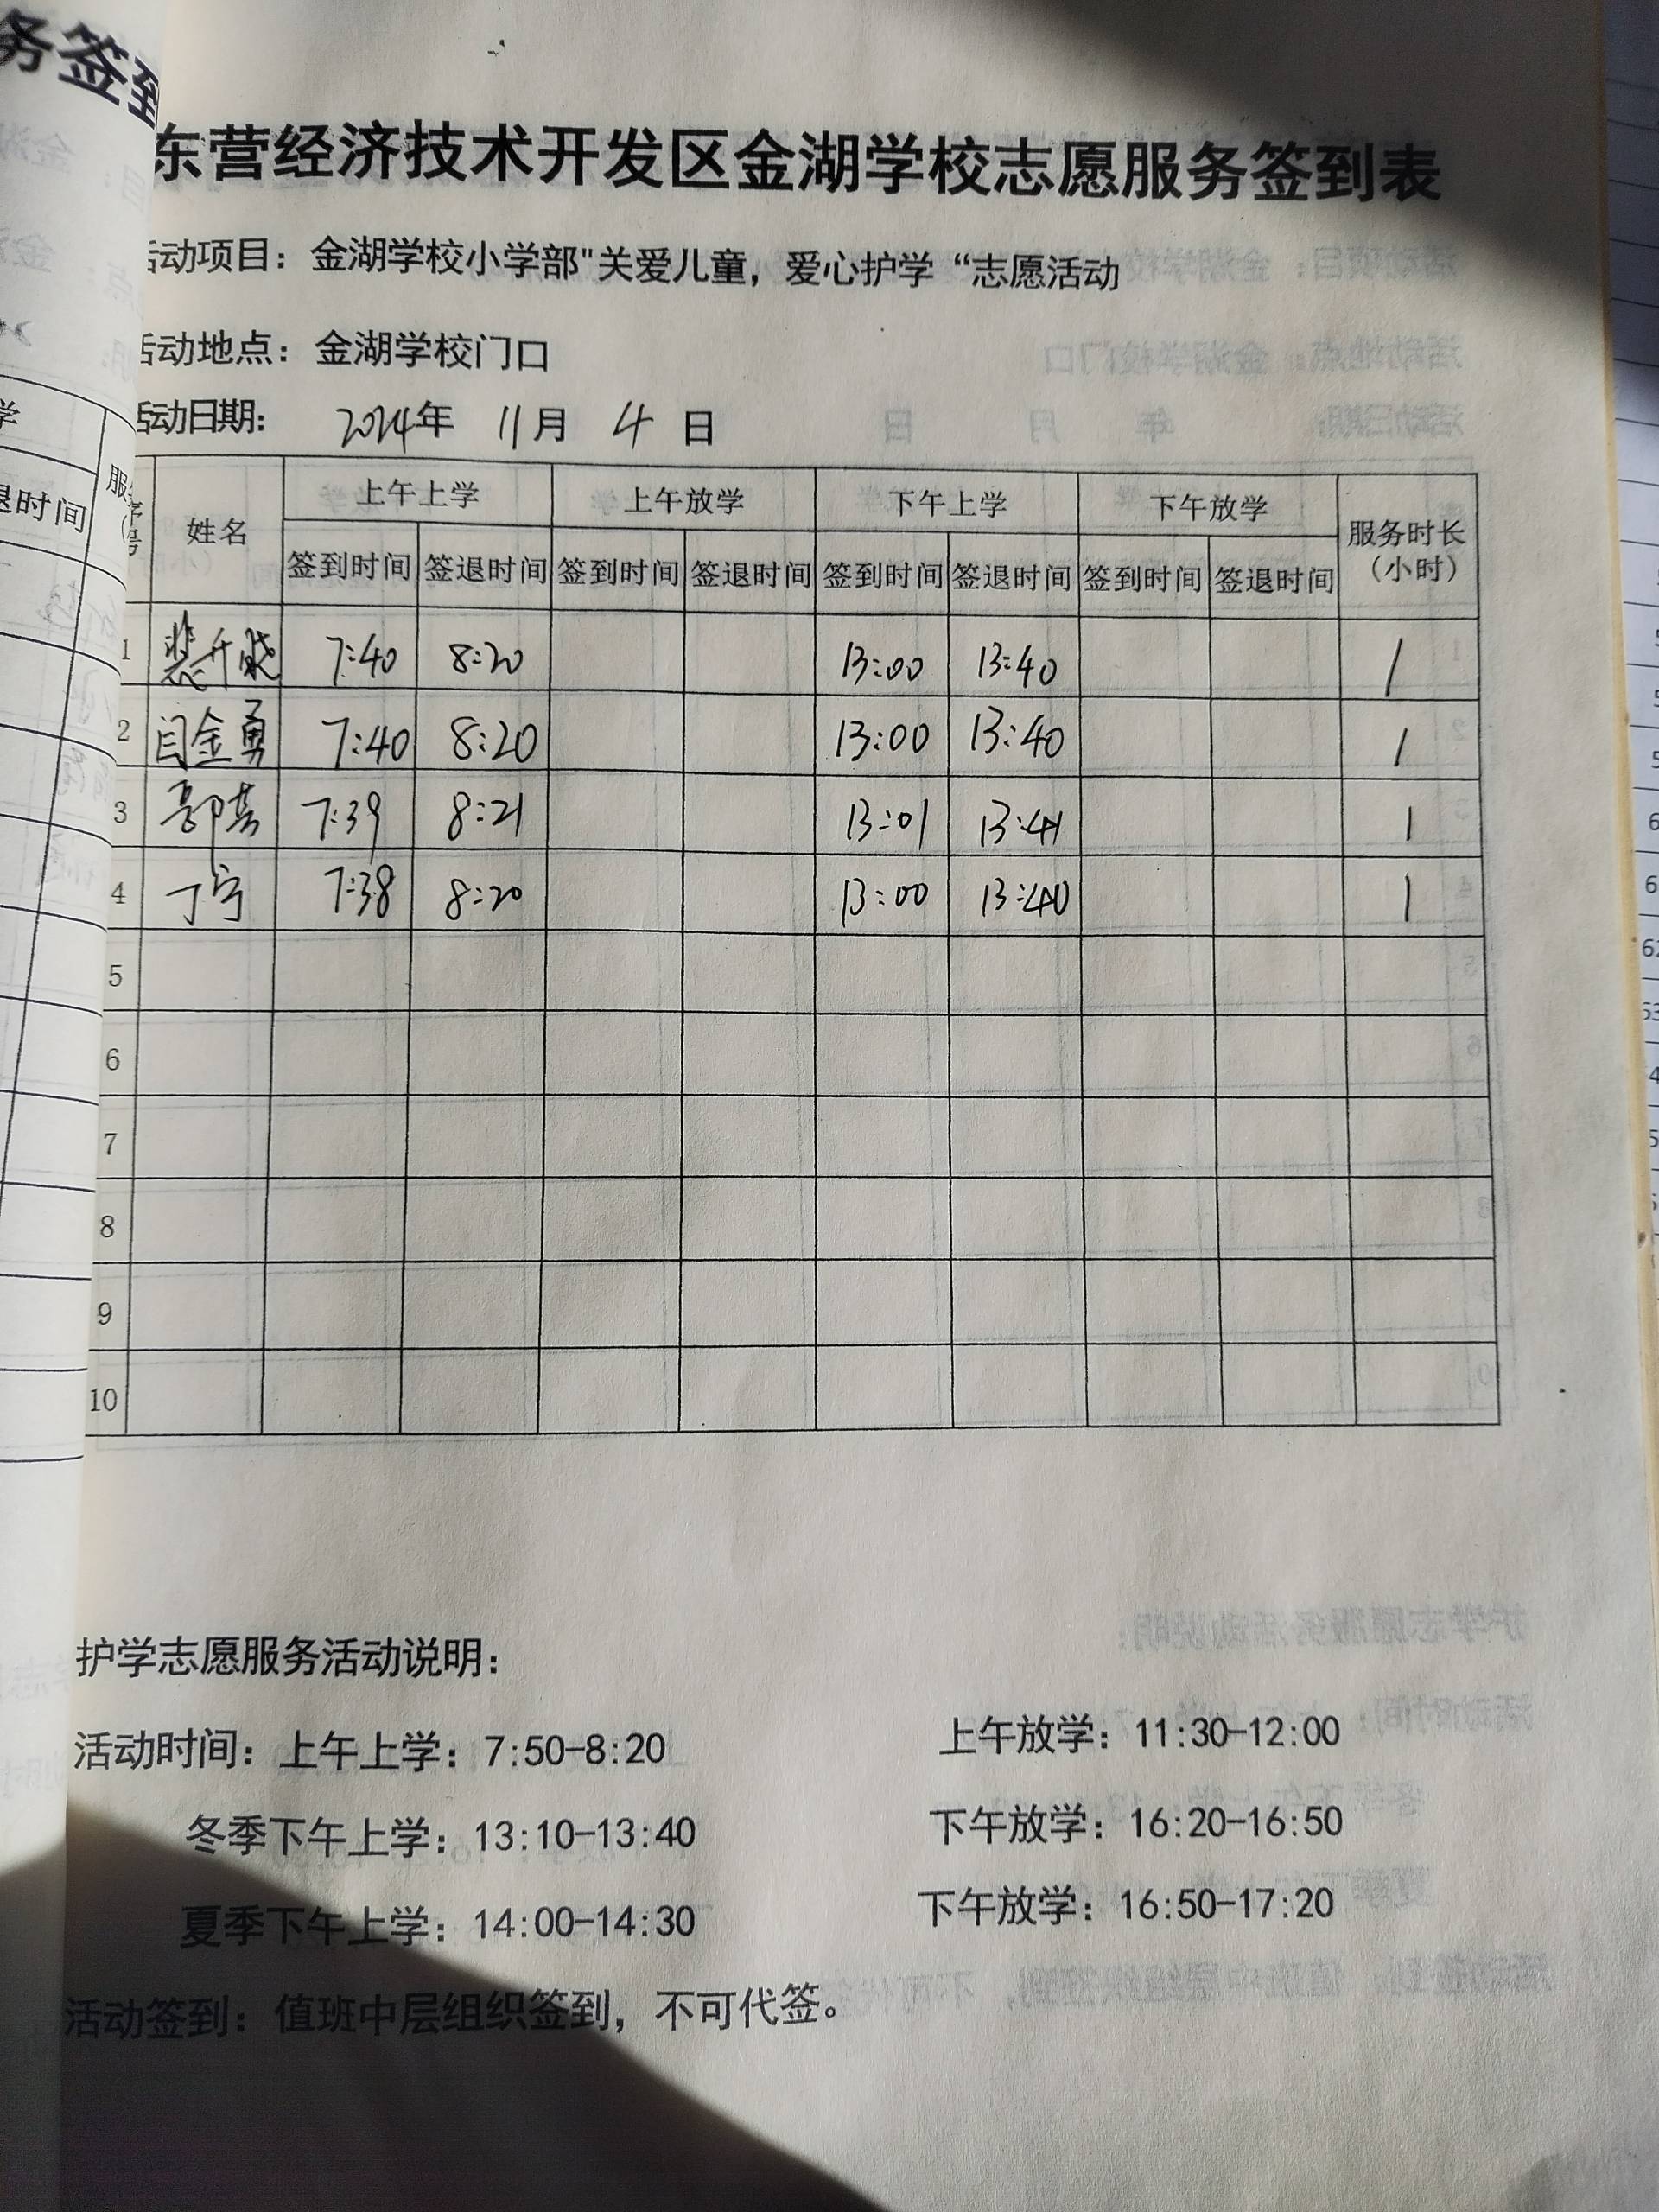 务签到
东营经济技术开发区金湖学校志愿服务签到表
活动项目：金湖学校小学部"关爱儿童，爱心护学“志愿活动
活动地点：金湖学校门口
活动日期： 2024年 11月 4日
姓名 上午上学 上午放学 下午上学 下午放学 服务时长（小时）
签到时间 签退时间 签到时间 签退时间 签到时间 签退时间 签到时间 签退时间
1 7:40 8:20 13:00 13:40 1
2 闫金勇 7:40 8:20 13:00 13:40 1
3 7:39 8:21 13:01 13:41 1
4 丁宁 7:38 8:20 13:00 13:40 1
5
6
7
8
9
10
护学志愿服务活动说明：
活动时间：上午上学：7:50-8:20 上午放学：11:30-12:00
冬季下午上学：13:10-13:40 下午放学：16:20-16:50
夏季下午上学：14:00-14:30 下午放学：16:50-17:20
活动签到：值班中层组织签到，不可代签。